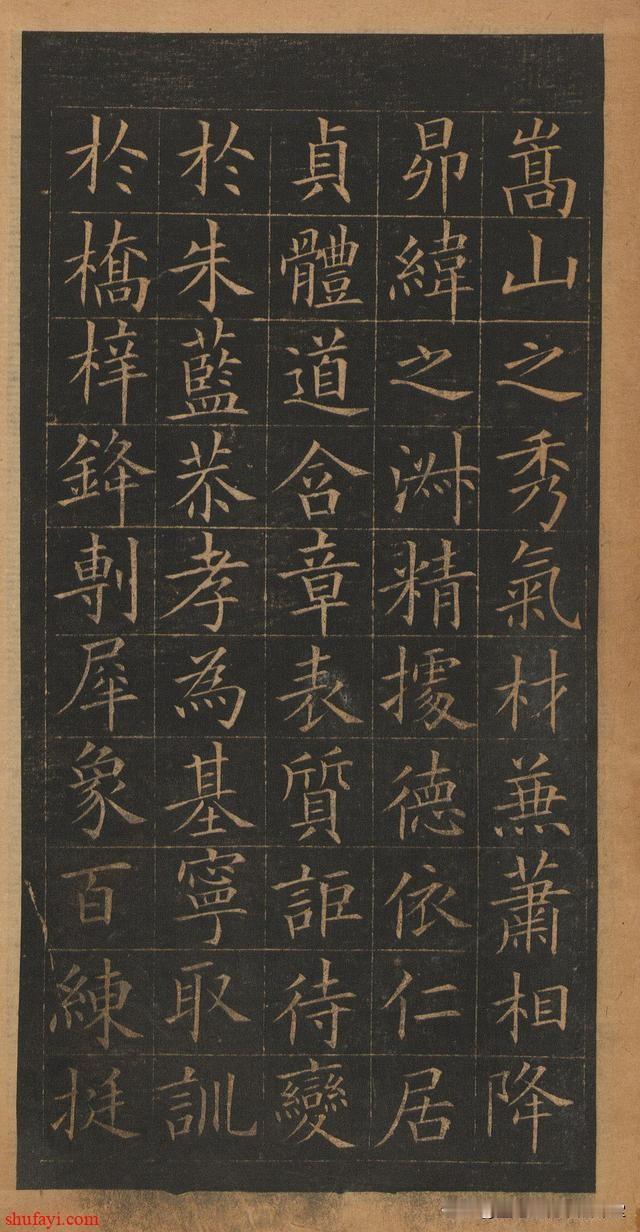 嵩山之秀氣材兼蕭相降
昴緯之淋精據德依仁居
貞體道含章表質詎待變
於朱藍恭孝為基寧取訓
於橋梓鋒剸犀象百練挺
shufayi.com